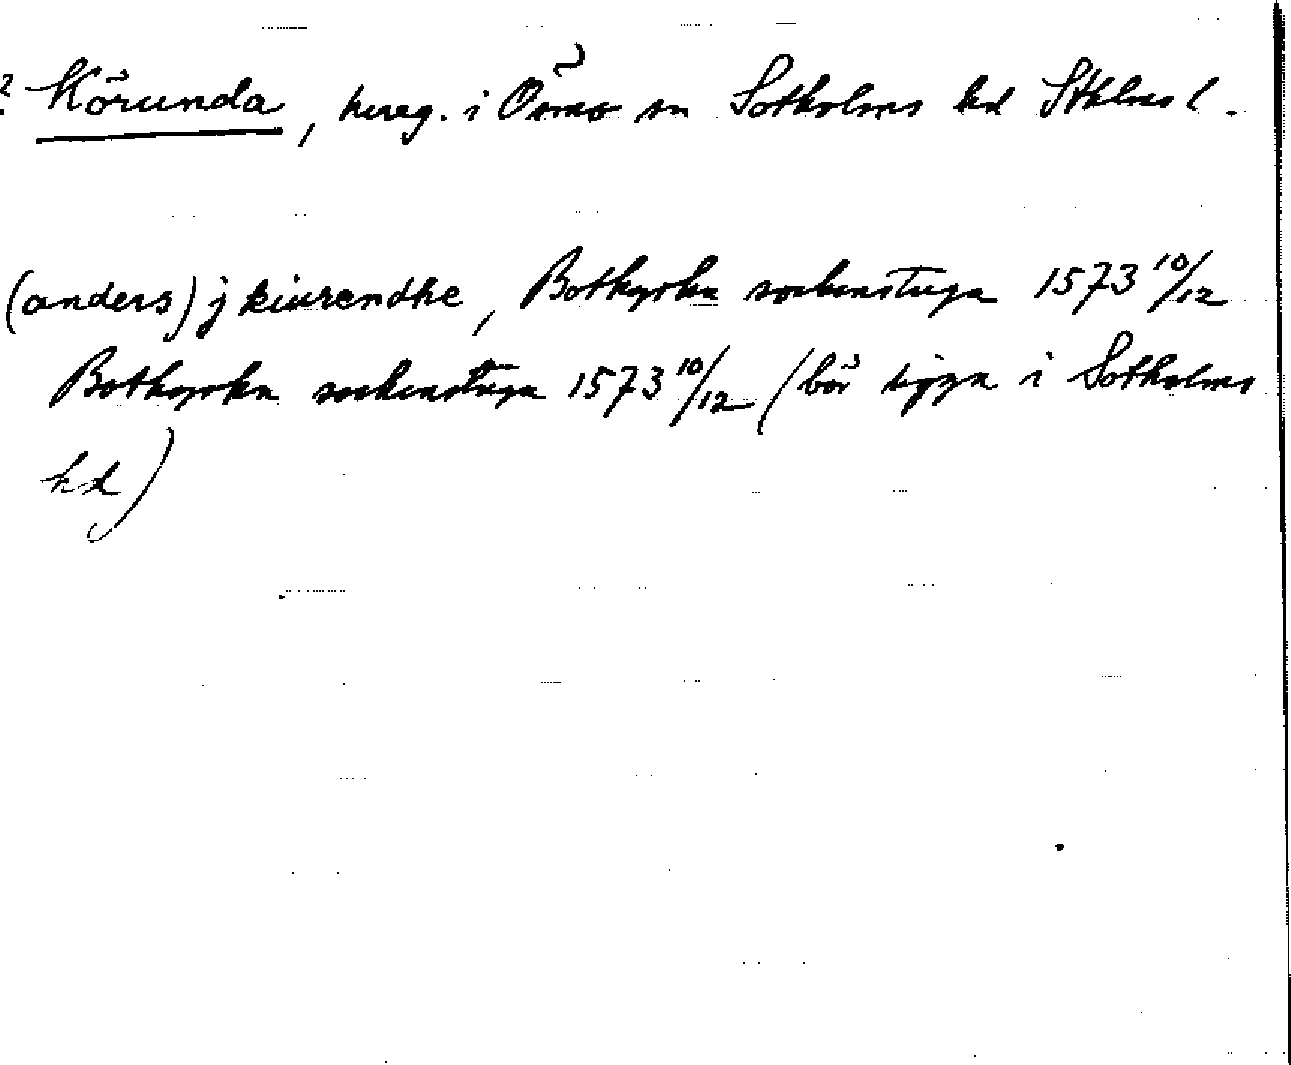 ? Körunda, hereg. i Ösmo sn Sotholms hd Sthlms l.
(anders) j kiurendhe, Botkyrka sockenstuga 1573 10/12
Botkyrka sockenstuga 1573 10/12 (bör ligga i Sotholms
hd)